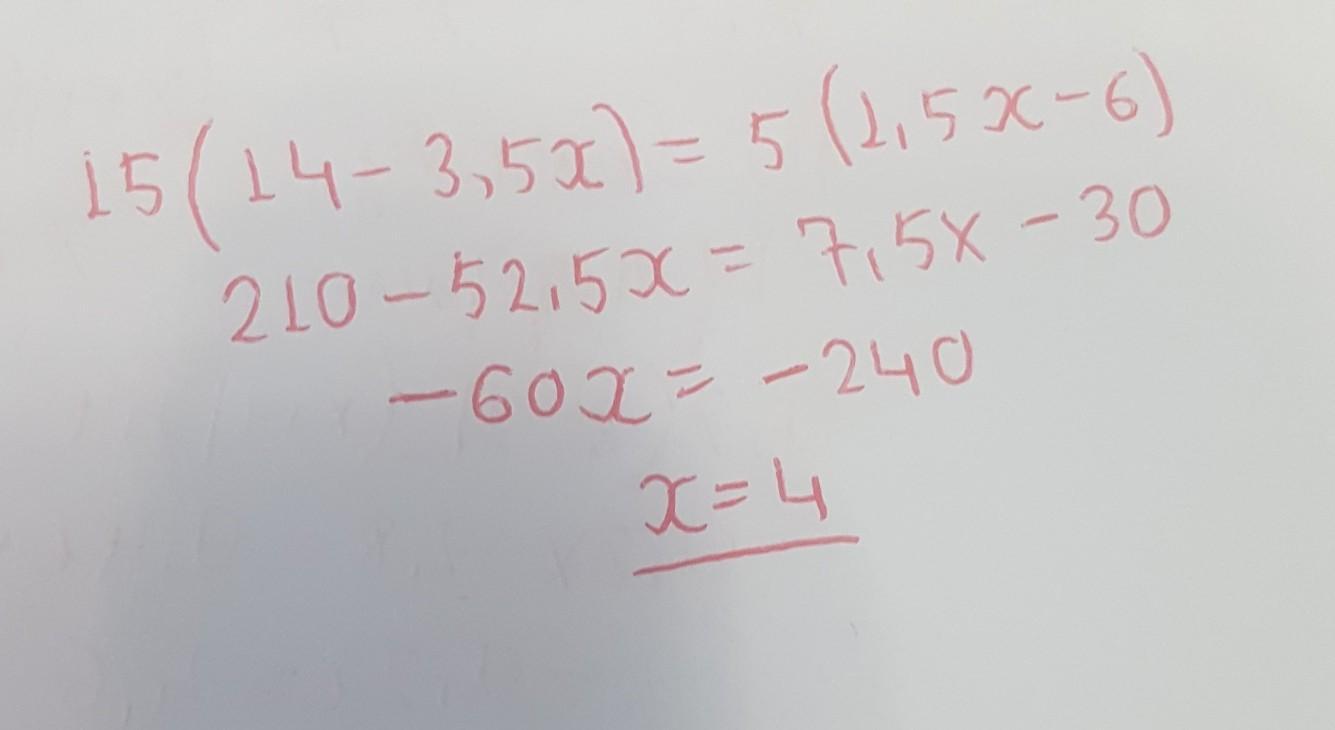 15(14-3,5x)=5(1,5x-6)
210-52,5x=7,5x-30
-60x=-240
x=4